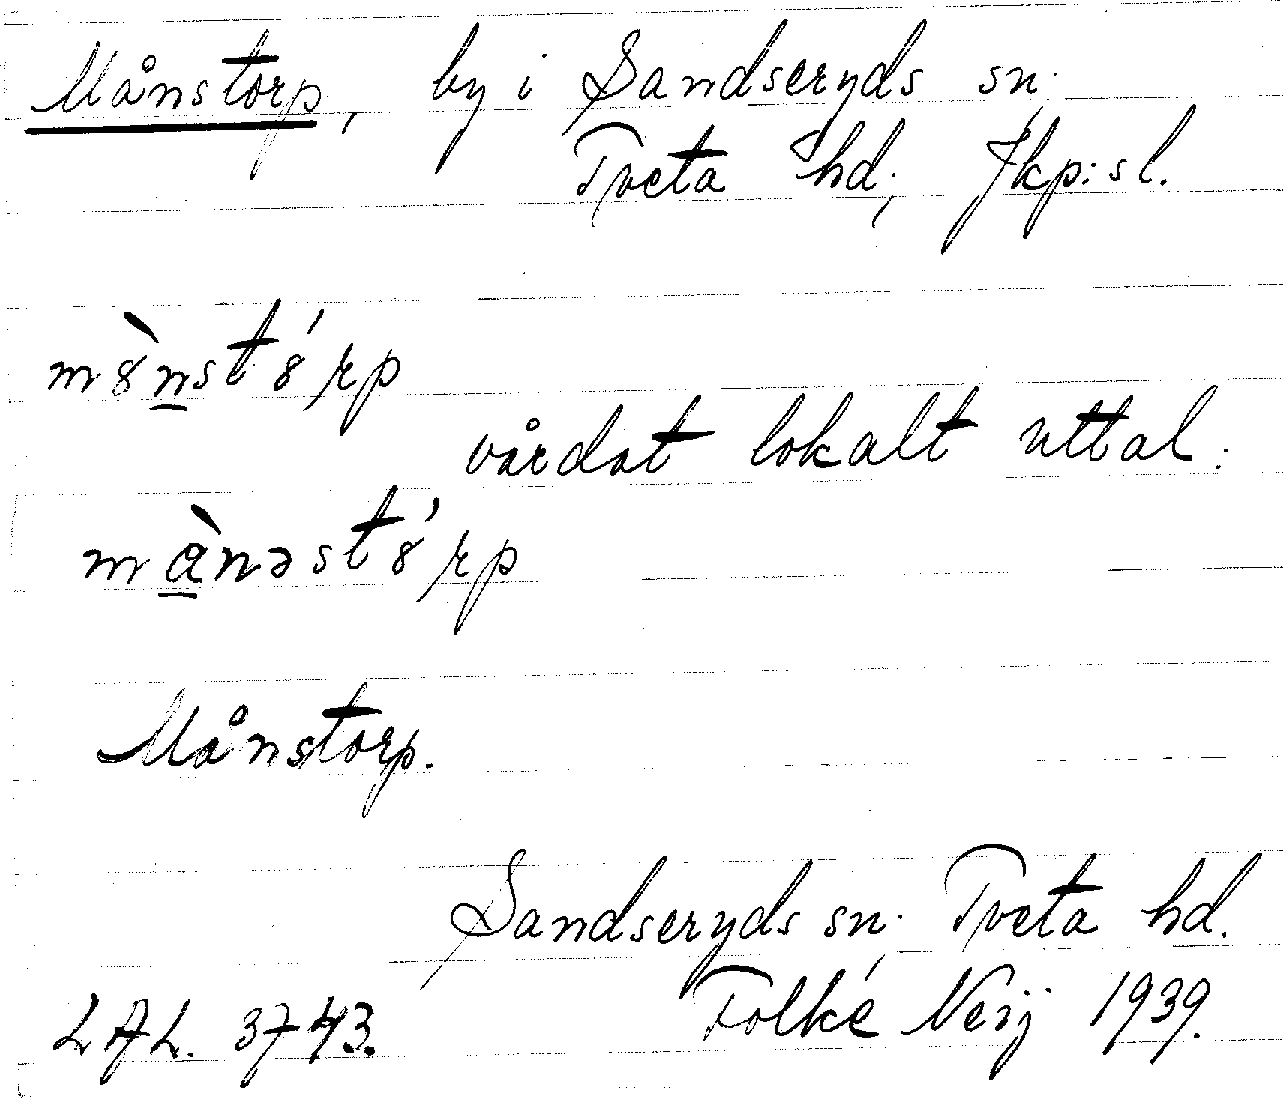 Månstorp, by i Sandseryds sn.
Tveta hd; Jkp:sl.
m8̀nst8́rp
vårdat lokalt uttal.
mànəst8́rp
Månstorp.
Sandseryds sn. Tveta hd.
L.A.L. 3743. Folke Neij 1939.